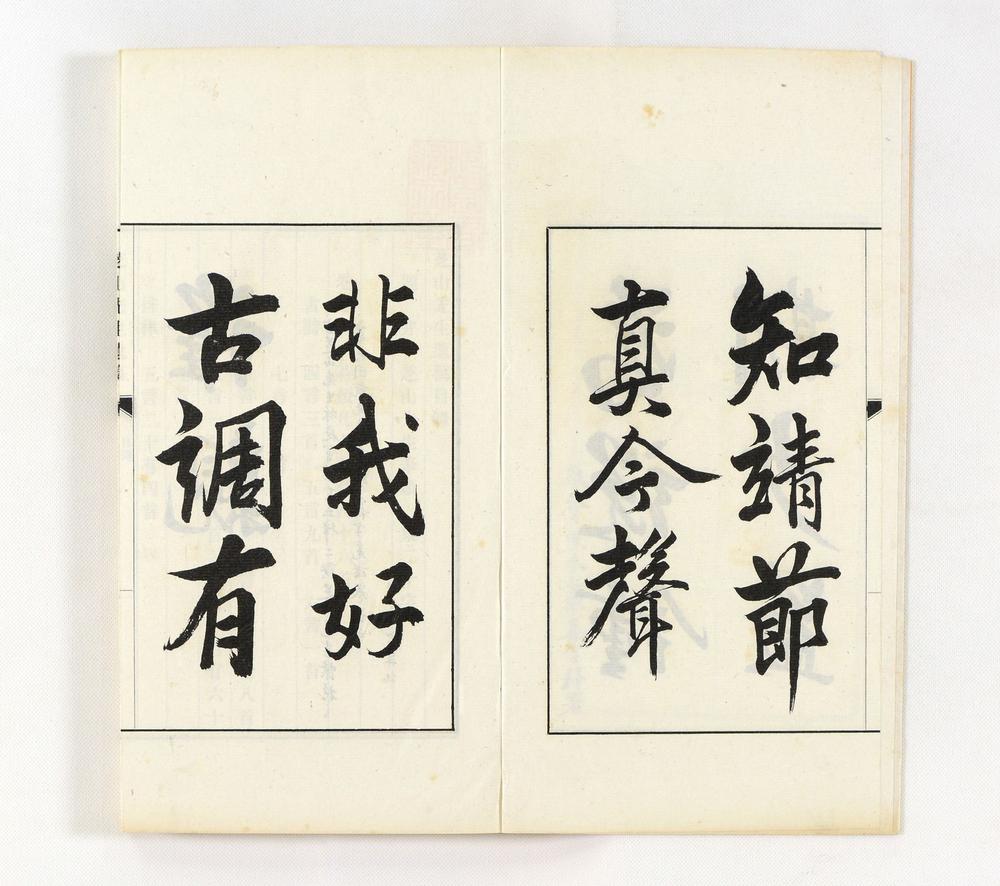 知靖節
真今聲
非我好
古調有